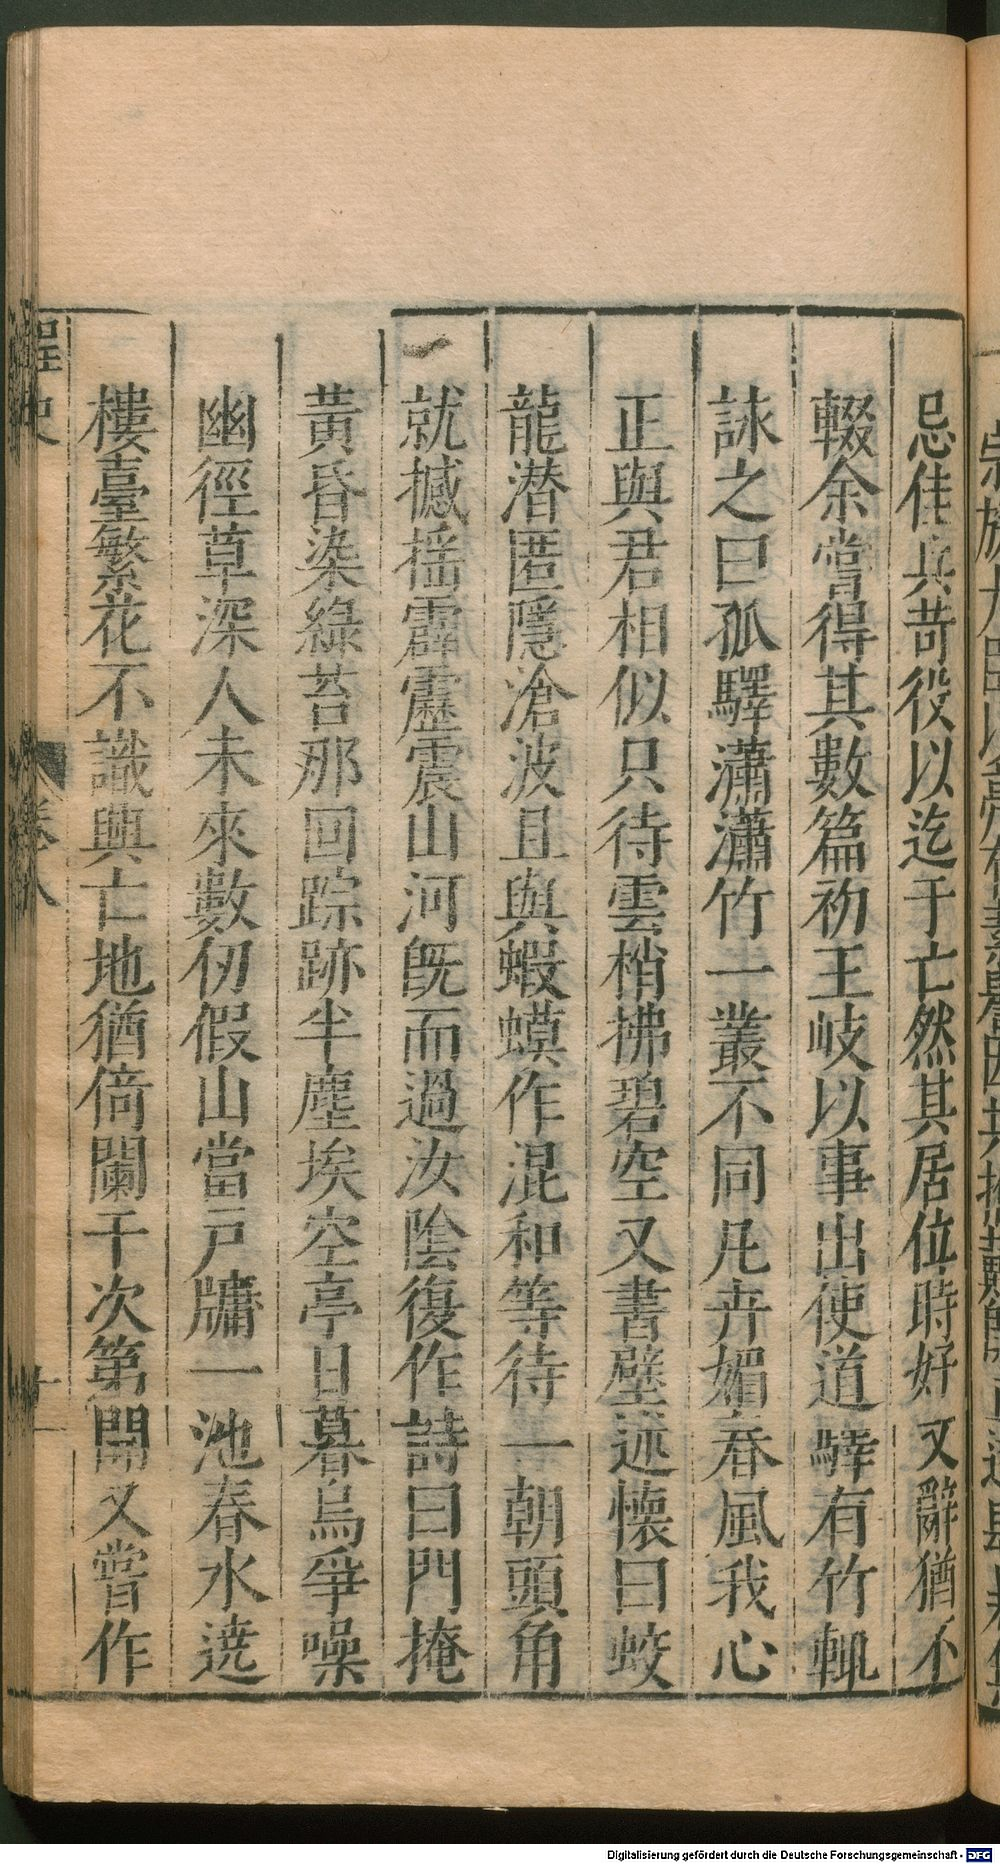 忌佳兵苛役以迄于亡然其居位時好文辭猶不
輟余嘗得其數篇初王岐以事出使道驛有竹輒
詠之曰孤驛瀟瀟竹一叢不同凡卉媚春風我心
正與君相似只待雲梢拂碧空又書壁述懷曰蛟
龍潛匿隱滄波且與蝦蟆作混和等待一朝頭角
就撼搖霹靂震山河旣而過汝陰復作詩曰門掩
黃昏染綠苔那回踪跡半塵埃空亭日暮烏爭噪
幽徑草深人未來數仞假山當戶牖一池春水遶
樓臺繁花不識興亡地猶倚闌干次第開又嘗作
桯史
卷八
十一
Digitalisierung gefördert durch die Deutsche Forschungsgemeinschaft - DFG